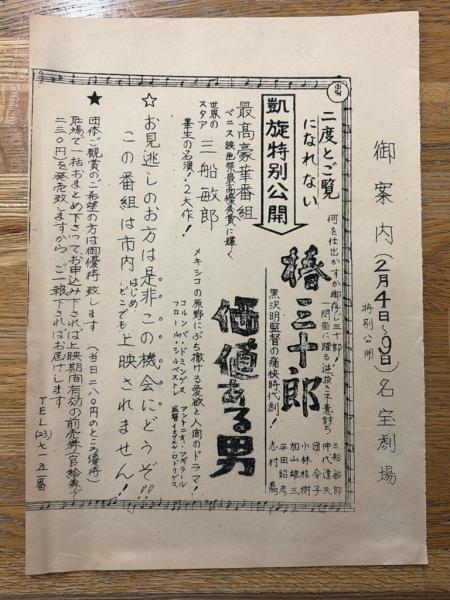 御案内(2月4日~9日)名宝劇場
特別公開
二度とご覧
になれない
凱旋特別公開
最高豪華番組
ベニス映画祭最高優秀賞に輝く
世界の
スタア 三船敏郎
畢生の名演!2大作!
何を仕出かすか御存じ三十郎!
閃光に躍る逆抜き不意討ち
椿三十郎
黒沢明監督の痛快時代劇!
三船敏郎
仲代達矢
団令子
小林桂樹
加山雄三
平田昭彦
志村喬
価値ある男
メキシコの原野にぶち撒ける愛欲と人間のドラマ!
コルンバ・ドミンゲス
フロール・シルベストレ
アントニオ・アギラール
監督イスマエル・ロドリゲス
☆お見逃しのお方は是非この機会にどうぞ!!
この番組は市内はじめどこでも上映されません!
★団体ご観賞のご希望の方は御優待致します(当日二八〇円のところ優待)
職場で一括おまとめ下さってお申込み下されば上映期間有効の前売券(官給券で
二三〇円)を発売致しますから、ご一報下さればお届けします
TEL(23)七一五一番